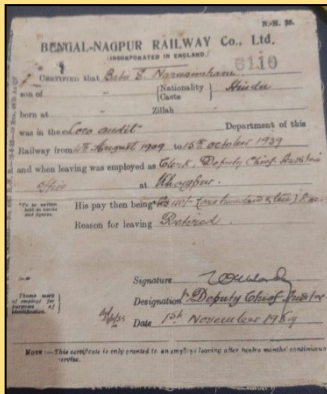 BENGAL-NAGPUR RAILWAY Co., Ltd.
(INCORPORATED IN ENGLAND.)
6110
CERTIFIED that Babu
son of " Nationality Caste Hindu
born at " Zillah "
was in the Loco audit Department of this
Railway from 4th August 1909 to 15th October 1939
and when leaving was employed as Clerk. Deputy Chief Auditor's
office at Khargpur.
His pay then being Rs
Reason for leaving Retired.
Signature
Designation Deputy Chief Auditor
Date 1st November 1939
NOTE:—This certificate is only granted to an employé leaving after twelve months' continuous service.